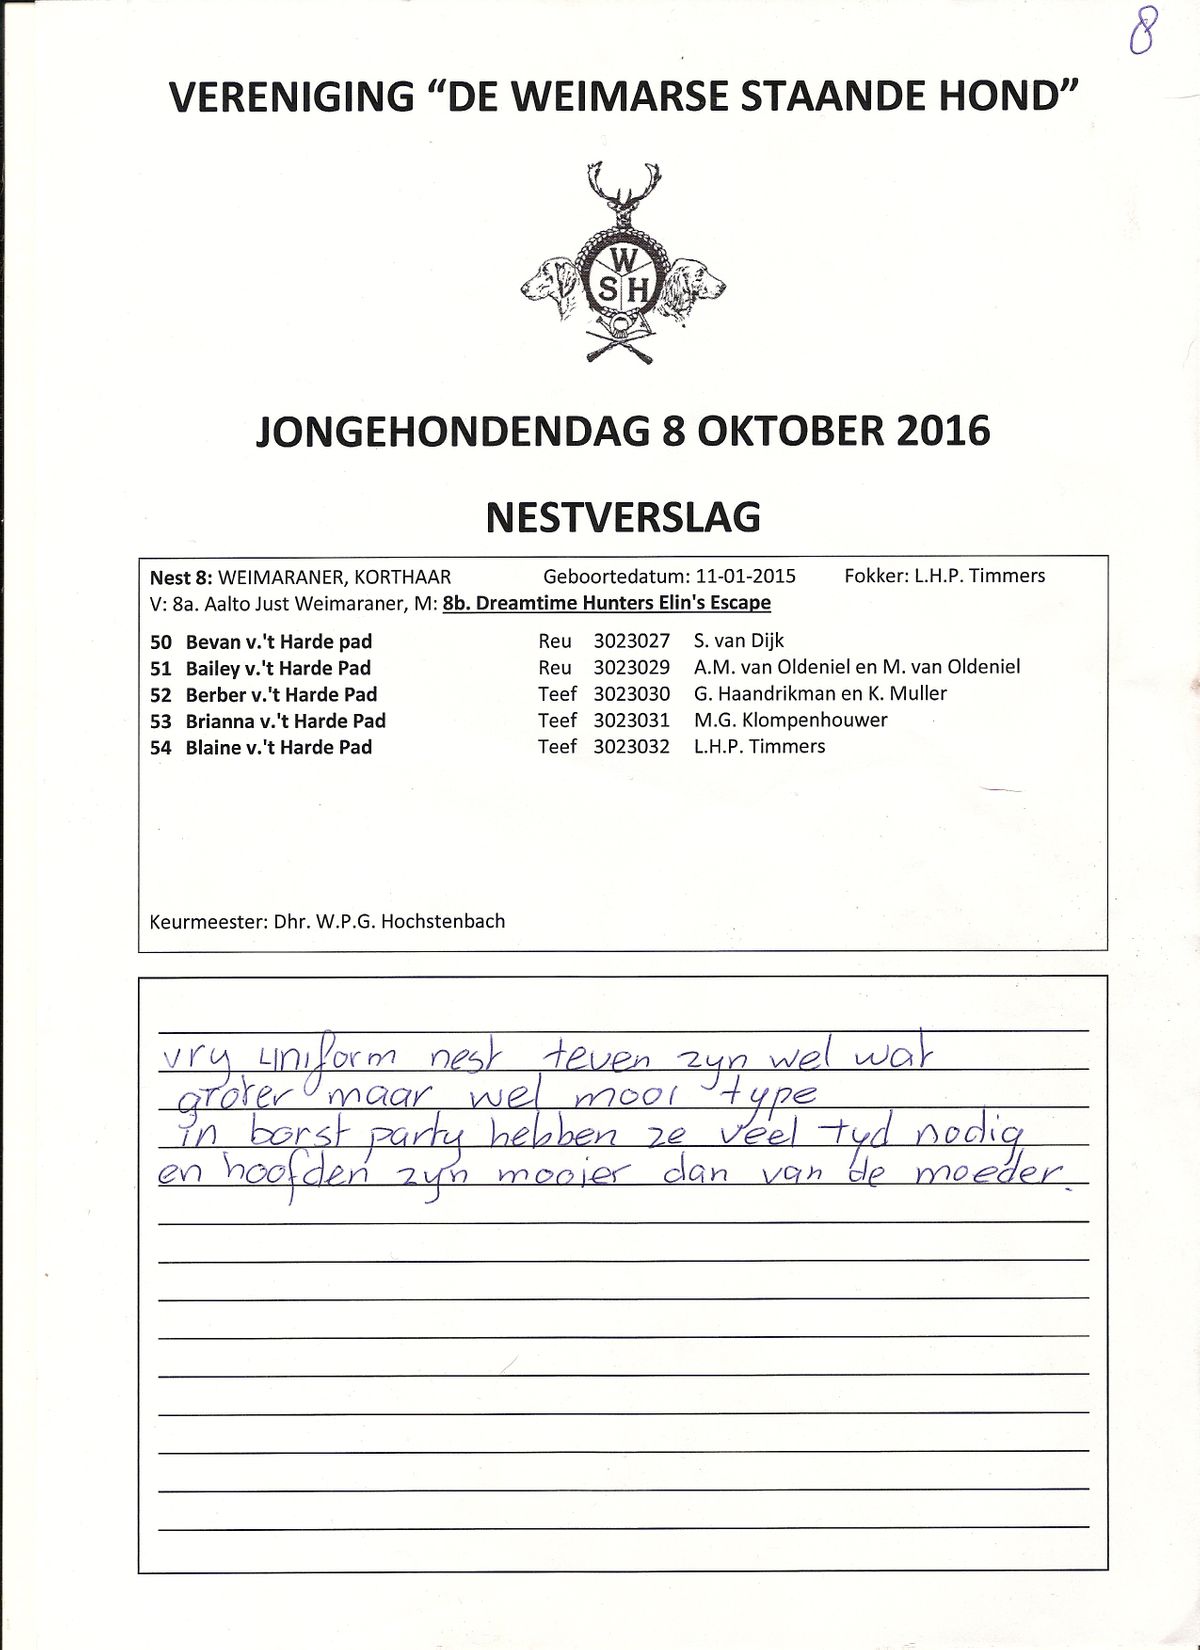 8
VERENIGING “DE WEIMARSE STAANDE HOND”
W
S H
JONGEHONDENDAG 8 OKTOBER 2016
NESTVERSLAG
Nest 8: WEIMARANER, KORTHAAR Geboortedatum: 11-01-2015 Fokker: L.H.P. Timmers
V: 8a. Aalto Just Weimaraner, M: 8b. Dreamtime Hunters Elin's Escape
50 Bevan v.'t Harde pad Reu 3023027 S. van Dijk
51 Bailey v.'t Harde Pad Reu 3023029 A.M. van Oldeniel en M. van Oldeniel
52 Berber v.'t Harde Pad Teef 3023030 G. Haandrikman en K. Muller
53 Brianna v.'t Harde Pad Teef 3023031 M.G. Klompenhouwer
54 Blaine v.'t Harde Pad Teef 3023032 L.H.P. Timmers
Keurmeester: Dhr. W.P.G. Hochstenbach
vry uniform nest teven zyn wel wat
groter maar wel mooi type
in borst party hebben ze veel tyd nodig
en hoofden zyn mooier dan van de moeder.